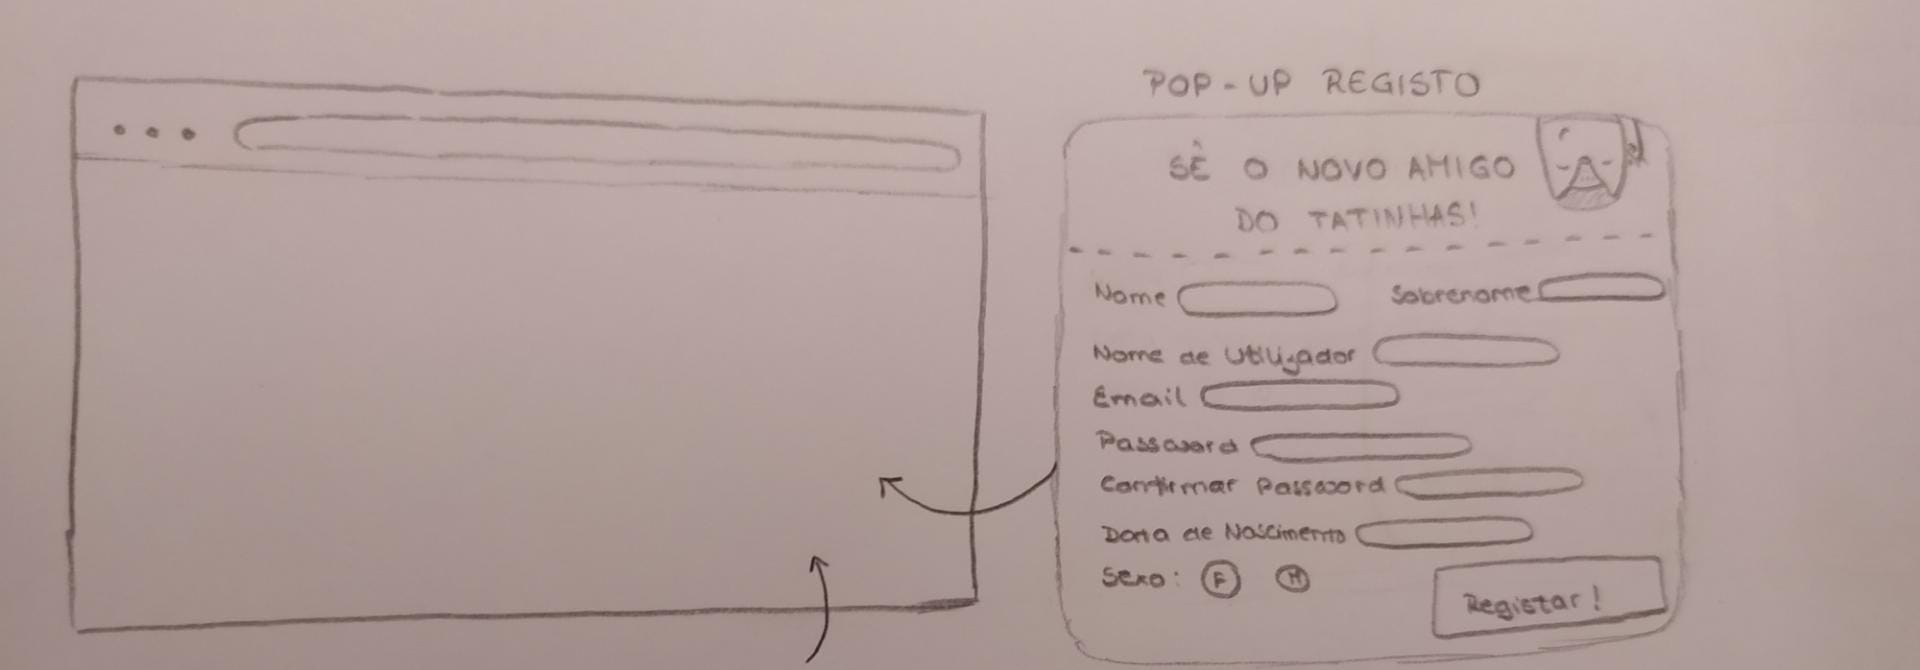 POP-UP REGISTO
SÊ O NOVO AMIGO
DO TATINHAS!
Nome
Sobrenome
Nome de Utilizador
Email
Password
Confirmar Password
Data de Nascimento
Sexo: F M
Registar!